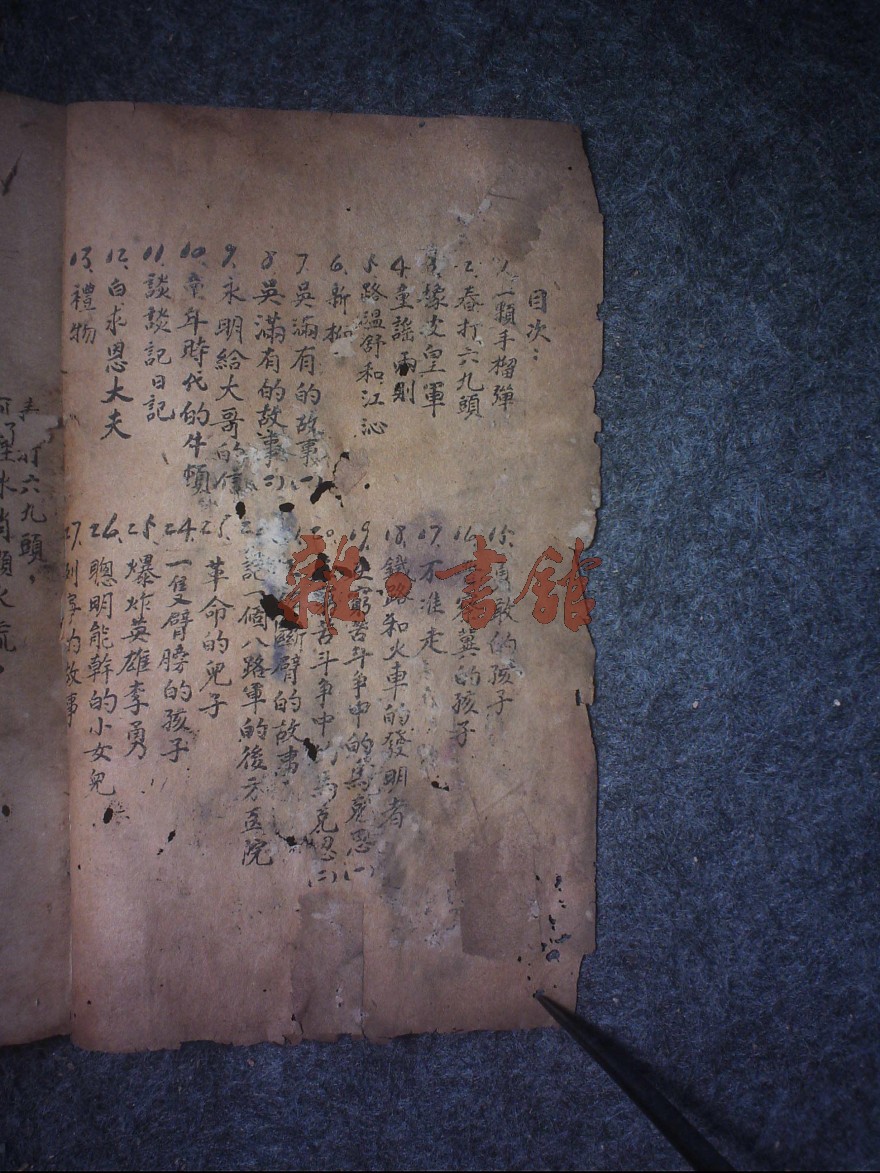 目次：
1、一顆手榴彈
2、春打六九頭
3、慘支皇軍
4、童謠兩則
5、路溫舒和江沁
6、新
7、吳滿有的故事(一)
8、吳滿有的故事(二)
9、永明給大哥的信
10、童年時代的牛頓
11、談談記日記
12、白求恩大夫
13、禮物
15、勇敢的孩子
16、冀的孩子
17、不准走
18、鐵路和火車的發明者
19、窮苦斗争中的馬克思(一)
20、苦斗争中的馬克思(二)
斷臂的故事
說一個八路軍的後方医院
23、革命的兒子
24、一隻臂膀的孩子
25、爆炸英雄李勇
26、聰明能幹的小女兒
27、列寧的故事
雜·書館
打六九頭，